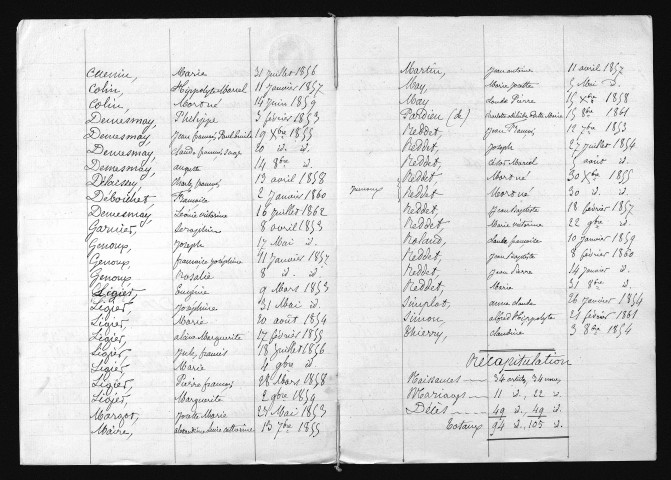 Cuenin, Marie 31 juillet 1856
Colin, Hippolyte Marcel 11 janvier 1857
Colin, Mort né 14 juin 1859
Demesmay, Philippe 3 février 1853
Demesmay, Jean françois Paul Emile 19 Xbre 1855
Demesmay, Claude françois 20 d. d.
Demesmay, auguste 14 8bre d.
Délaissey, Charles françois 13 avril 1858
Débouchet, Francoise 2 janvier 1860
Demesmay, Léonie victorine 16 juillet 1862
Garnier, Seraphin 8 avril 1853
Genoux, Joseph 17 Mai d.
Genoux, francoise joséphine 11 janvier 1857
Genoux, Rosalie 8 d. d.
Ligier, Eugénie 9 Mars 1853
Ligier, Joséphine 31 Mai d.
Ligier, Marie 20 août 1854
Ligier, Marguerite 17 février 1855
Ligier, Jules françois 18 juillet 1856
Ligier, Marie 4 9bre d.
Ligier, Pierre françois 28 Mars 1858
Ligier, Marguerite 2 9bre 1854
Margot, Josette Marie 27 Mai 1853
Maire, alexandrine Luise catharine 13 7bre 1855
Martin, jean antoine 11 avril 1857
May, Marie josette 5 Mai d.
May, Claude Pierre 15 Xbre 1858
Pardieu (de) Marie 15 8bre 1861
Reddet, Jean francois 12 7bre 1853
Reddet, Joseph 27 juillet 1854
Reddet, Marcel 5 août d.
Reddet, Mort né 30 Xbre 1855
jumeaux Reddet Mort né 30 d. d.
Reddet, Jean Baptiste 18 février 1857
Reddet, Marie victorine 22 9bre d.
Roland, Claude francoise 10 janvier 1859
Reddet, Jean Baptiste 8 février 1860
Reddet, Jean Pierre 14 janvier d.
Reddet, Marie 31 8bre d.
Simplot, anne claude 26 janvier 1854
Simon, alfred Hippolyte 21 février 1861
Thierry, Claudine 3 8bre 1854
Récapitulation
Naissances 34 articles, 34 noms,
Mariages 11 d., 22 d.
Décès 49 d., 49 d.
Totaux 94 d., 105 d.